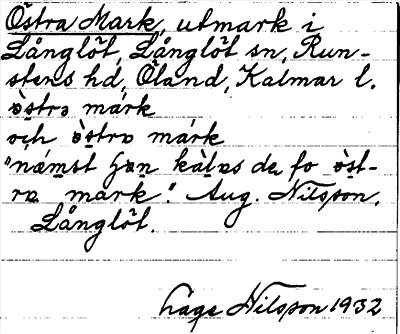 Östra Mark, utmark i
Långlöt, Långlöt sn, Run-
stens hd, Öland, Kalmar l.
östrə márk
och östra márk
"námst han kàlas de fo öst-
ra mark". Aug. Nilsson,
Långlöt.
Låge Nilsson 1932